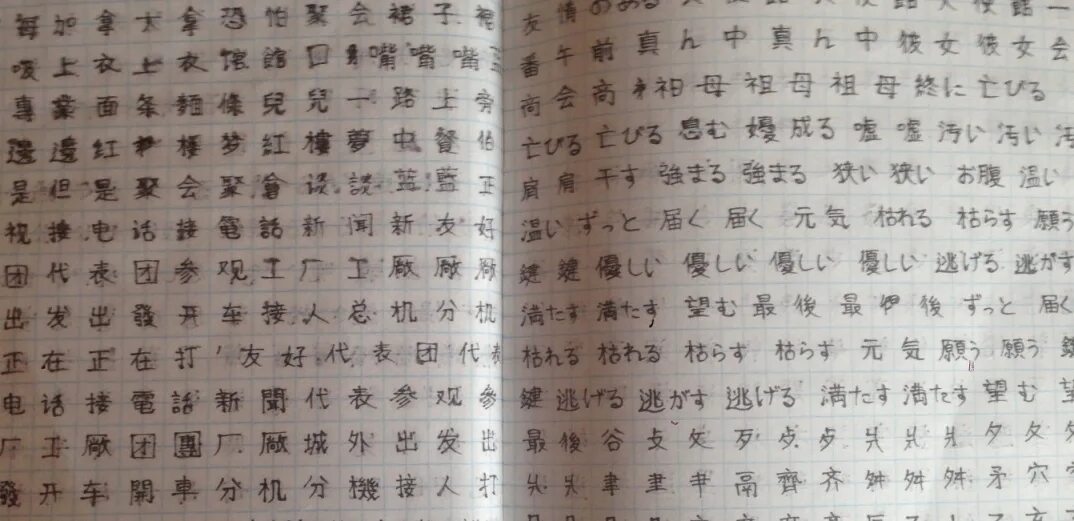 每加拿大拿恐怕聚会裙子裙
吸上衣上衣馆館口嘴嘴嘴
專業面条麵條兒兒一路上旁
邊邊红楼梦紅樓夢中餐伯
是但是聚会聚會谈談蓝藍正
视接电话接電話新闻新友好
团代表团参观工厂工廠廠廠
出发出發开车接人总机分机
正在正在打友好代表团代表
电话接電話新聞代表参观參
厂工廠团團厂廠城外出发出
發开车開車分机分機接人打
友情のある
番午前真ん中真ん中彼女彼女会
商会商祖母祖母祖母終に亡びる
亡びる亡びる息む 成る嘘嘘汚い汚い汚
肩肩干す強まる強まる狭い狭いお腹温い
温いずっと届く届く元気枯れる枯らす願う
鍵鍵優しい優しい優しい優しい逃げる逃がす
満たす満たす望む最後最後ずっと届く
枯れる枯れる枯らす枯らす元気願う願う鍵
鍵逃げる逃がす逃げる満たす満たす望む望
最後谷攴攵歹歺歺爿爿爿夕夂
爿爿聿聿肀鬲齊齐舛舛舛矛穴